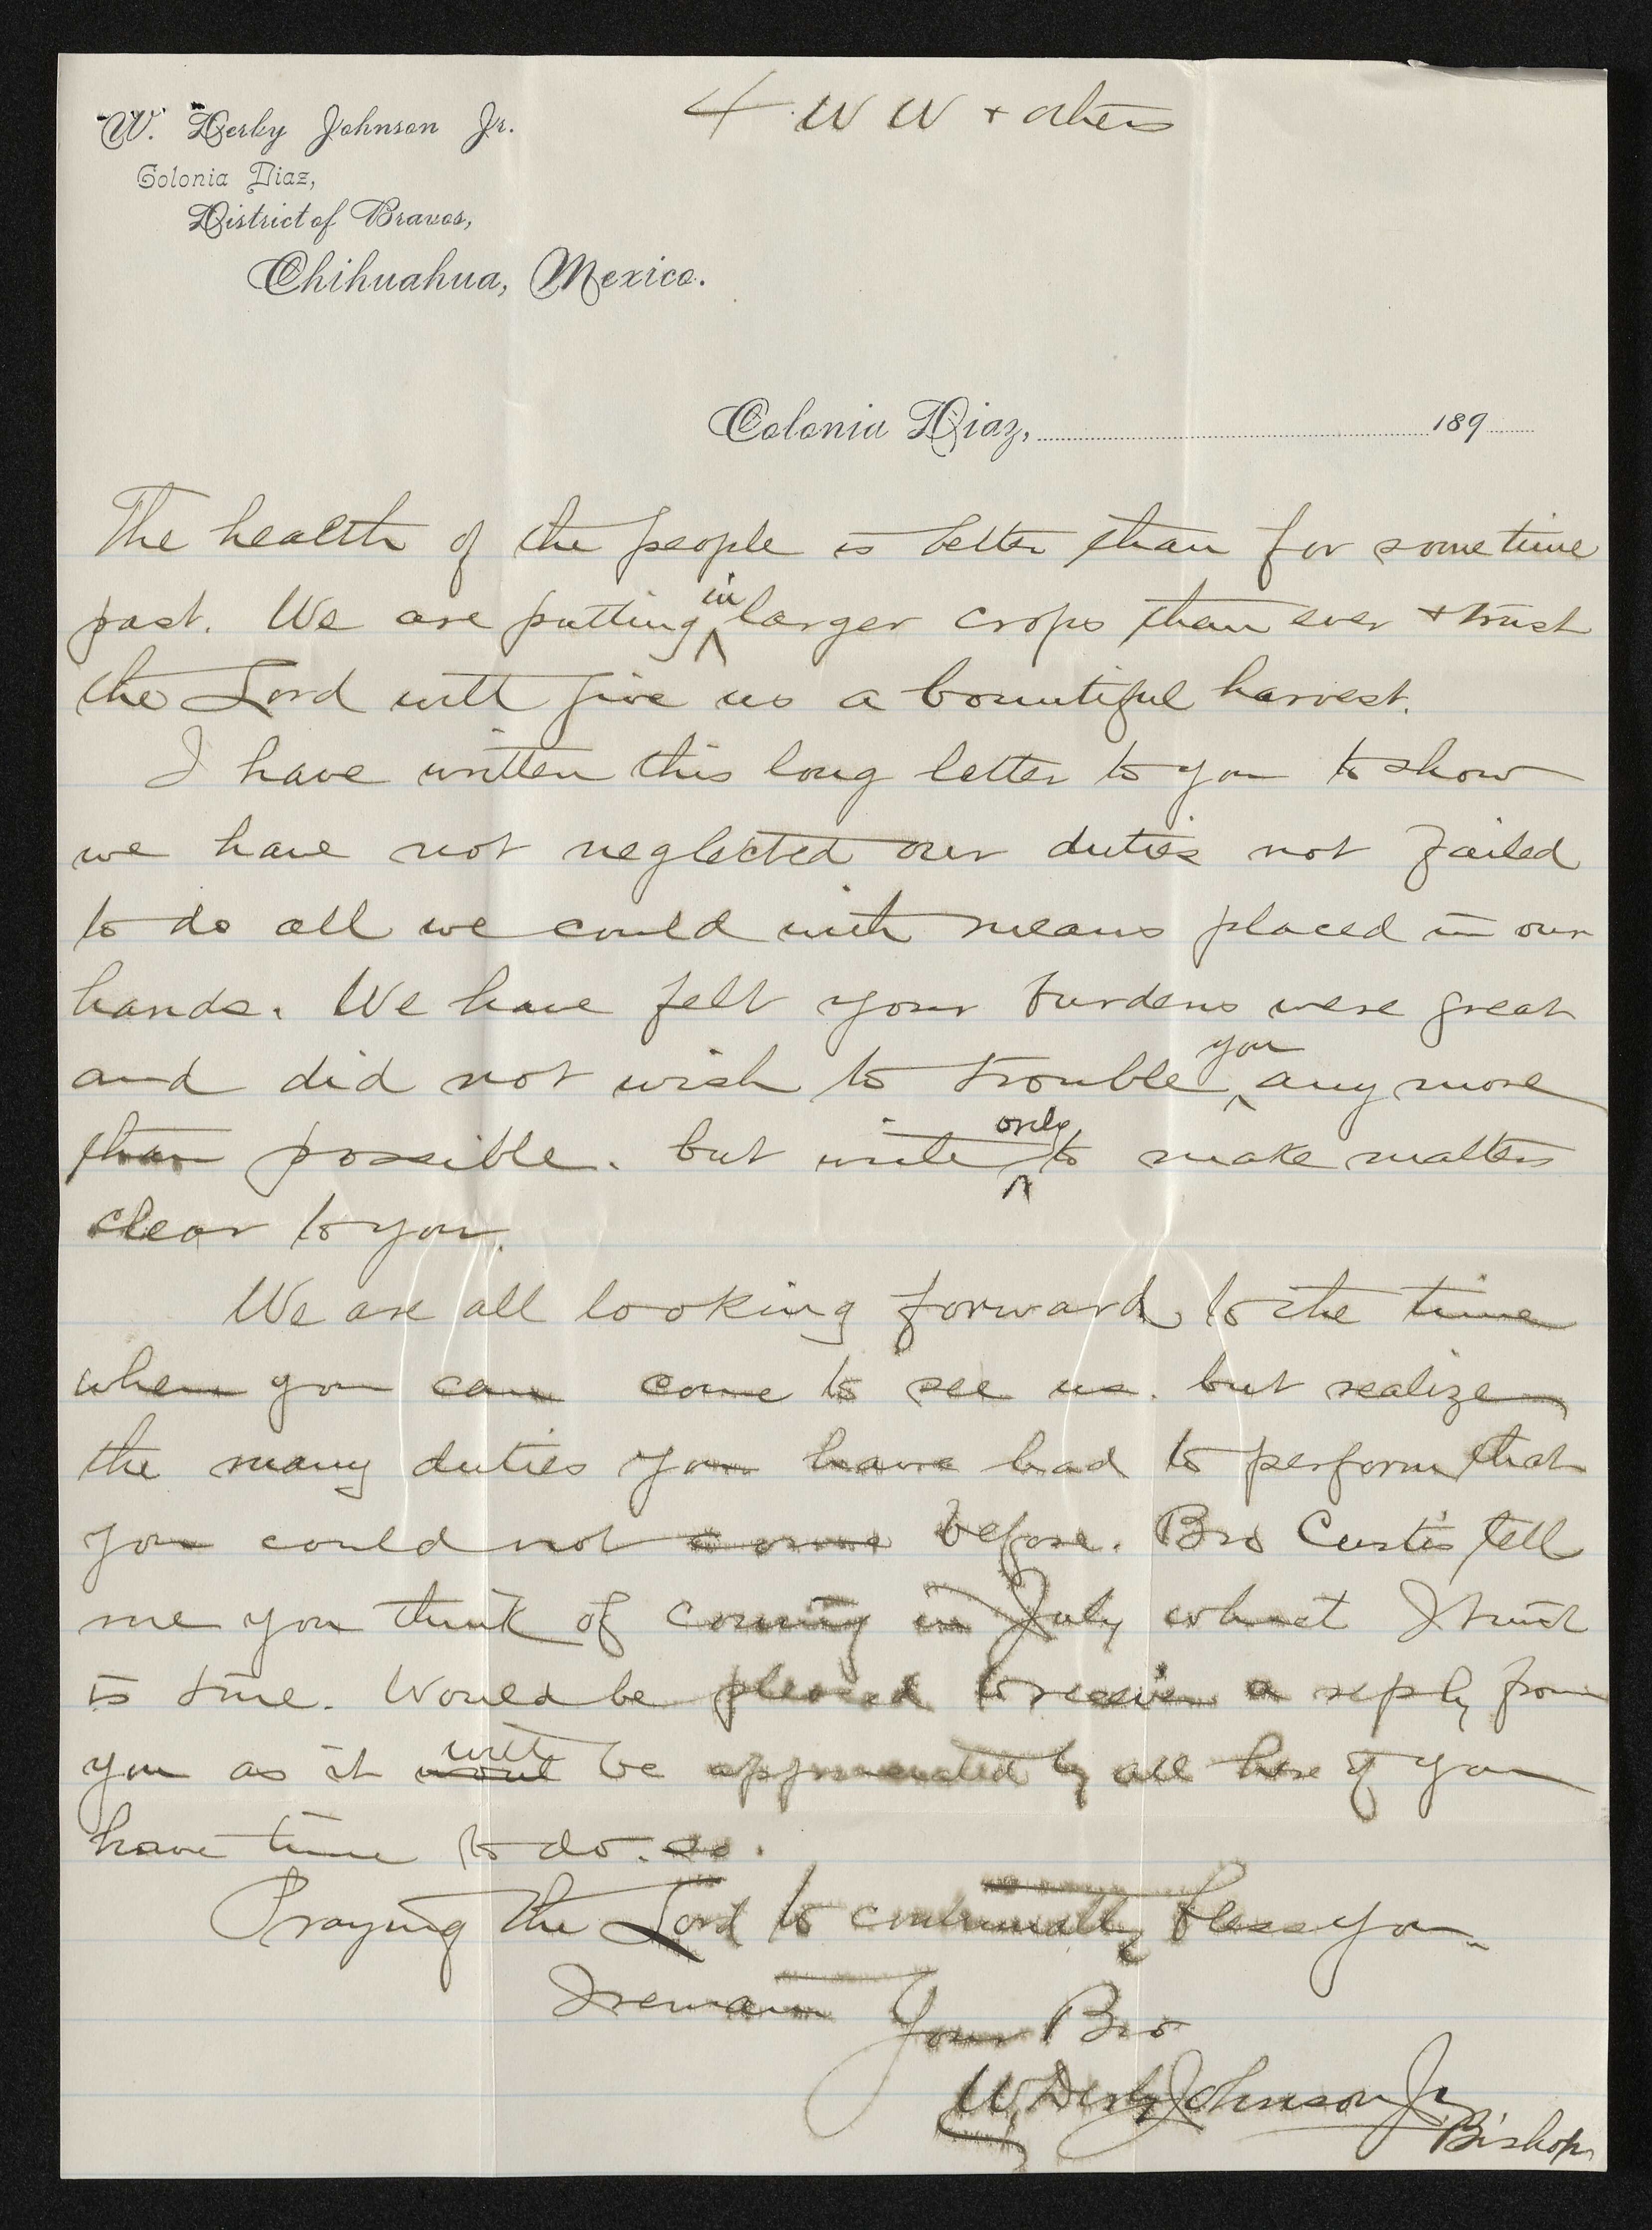 4 W W + others
W. Derby Johnson Jr.
Colonia Diaz,
District of Bravos,
Chihuahua, Mexico.
Colonia Diaz, 189
The health of the people is better than for some time
past. We are putting in larger crops than ever + trust
the Lord will give us a bountiful harvest.
I have written this long letter to you to show
we have not neglected our duties not failed
to do all we could with means placed in our
hands. We have felt your burdens were great
and did not wish to trouble you any more
than possible. but write only to make matters
clear to you.
We are all looking forward to the time
when you can come to see us. but realize
the many duties you have had to perform that
you could not come before. Bro Curtis tell
me you think of coming in July what I trust
is true. Would be pleased to receive a reply from
you as it will be appreciated by all here if you
have time to do. so.
Praying the Lord to continually bless you.
I remain
Your Bro
W Derby Johnson Jr
Bishop